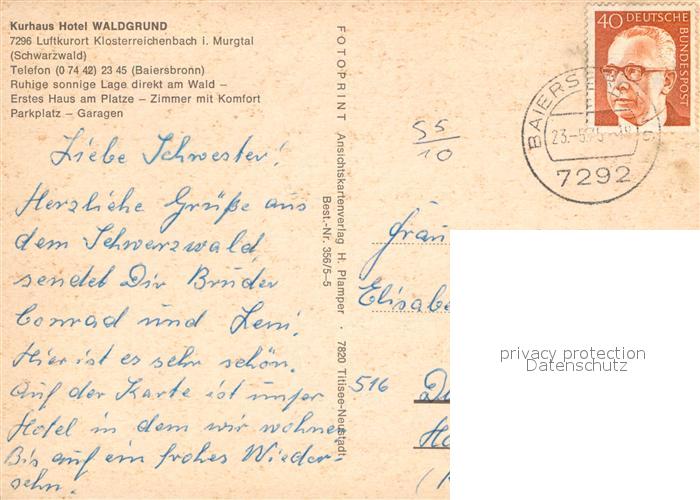 Kurhaus Hotel WALDGRUND
7296 Luftkurort Klosterreichenbach i. Murgtal
(Schwarzwald)
Telefon (0 74 42) 23 45 (Baiersbronn)
Ruhige sonnige Lage direkt am Wald –
Erstes Haus am Platze – Zimmer mit Komfort
Parkplatz – Garagen
Liebe Schwester!
Herzliche Grüße aus
dem Schwarzwald
sendet Dir Bruder
Conrad und Leni.
Hier ist es sehr schön.
Auf der Karte ist unser
Hotel in dem wir wohnen
Bis auf ein frohes Wieder-
sehn.
FOTOPRINT Ansichtskartenverlag H. Plamper · 7820 Titisee-Neustadt
Best.-Nr. 356/5–5
55/10
40 DEUTSCHE
BUNDESPOST
BAIERS
23.–5.75
7292
Frau
Elisabe
516 Dü
privacy protection
Datenschutz